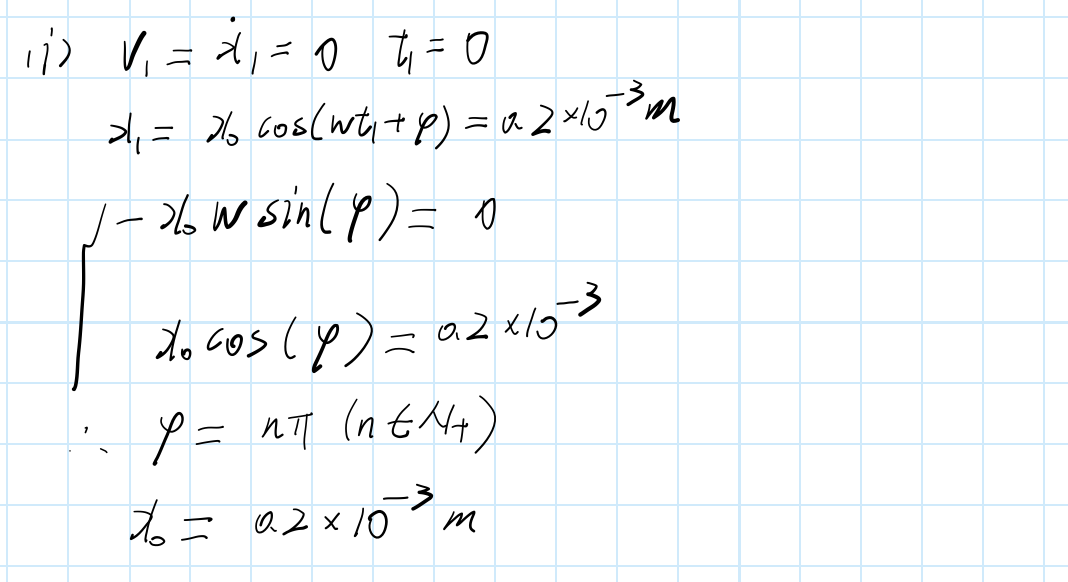 ii) V₁ = ẋ₁ = 0 t₁ = 0
x₁ = x₀ cos(wt₁+φ) = 0.2×10⁻³m
-x₀ w sin(φ) = 0
x₀ cos(φ) = 0.2×10⁻³
∴ φ = nπ (n∈N₊)
x₀ = 0.2×10⁻³ m